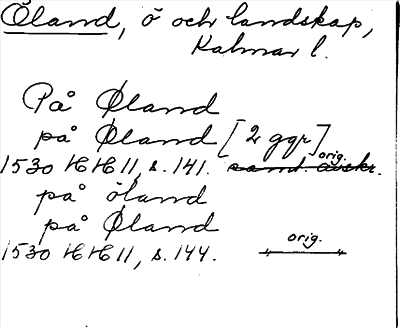 Öland, ö och landskap,
Kalmar l.
På Øland
på Øland [2 ggr]
1530 HH 11, s. 141. samt. avskr. orig.
på öland
på Øland
1530 HH 11, s. 144. —"— orig. —"—